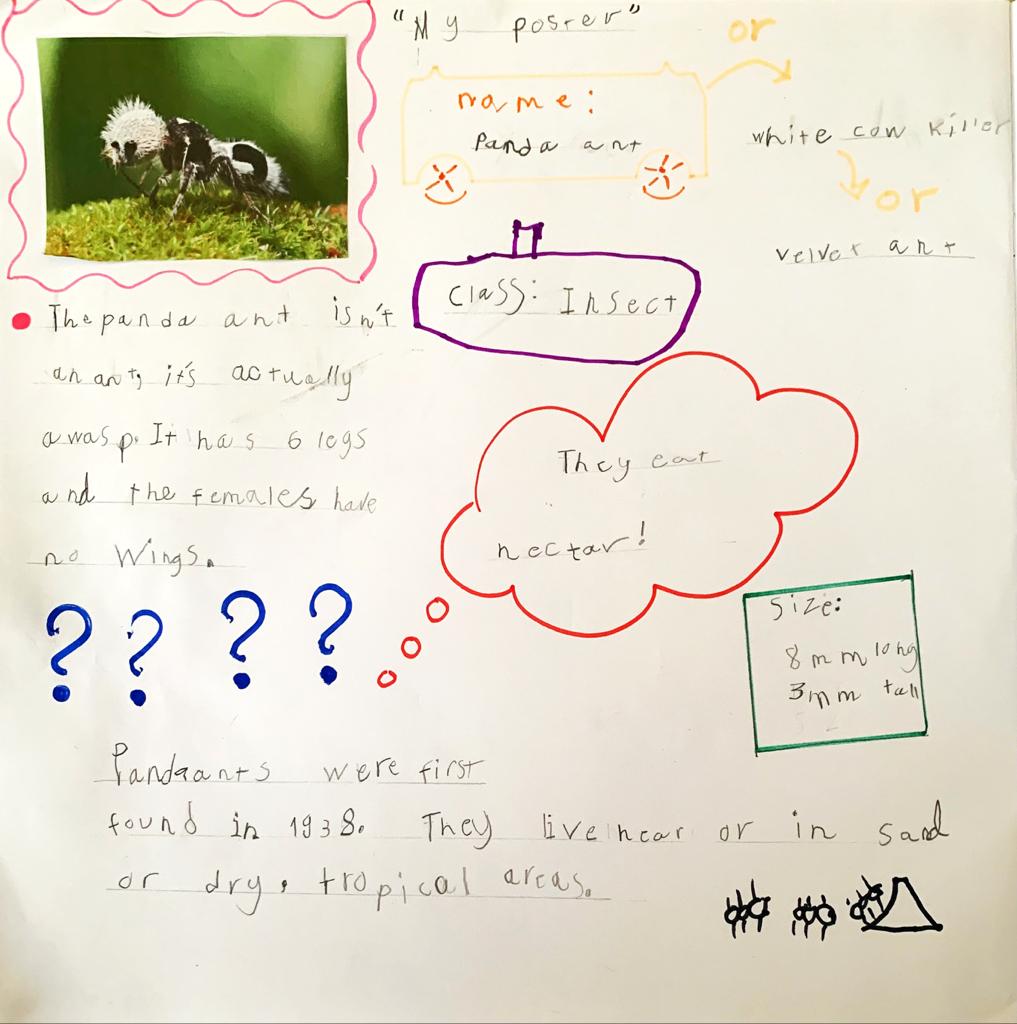 "My poster"
or
name:
Panda ant
white cow killer
or
velvet ant
class: Insect
The panda ant isn't
an ant, it's actually
a wasp. It has 6 legs
and the females have
no wings.
They eat
nectar!
? ? ? ?
Size:
8mm long
3mm tall
Panda ants were first
found in 1938. They live near or in sand
or dry, tropical areas.